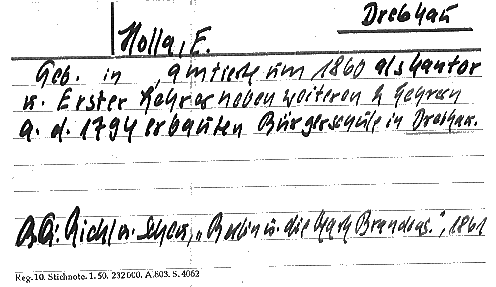 Drebkau
Nolla, E.
Geb. in , amtierte um 1860 als Kantor
u. Erster Lehrer neben weiteren 2 Lehrern
a. d. 1794 erbauten Bürgerschule in Drebkau.
Richl u. Scheu, „Berlin u. die Mark Brandenbg.", 1861
Reg. 10. Stichnote. 1. 50. 232 000. A. 803. S. 4062